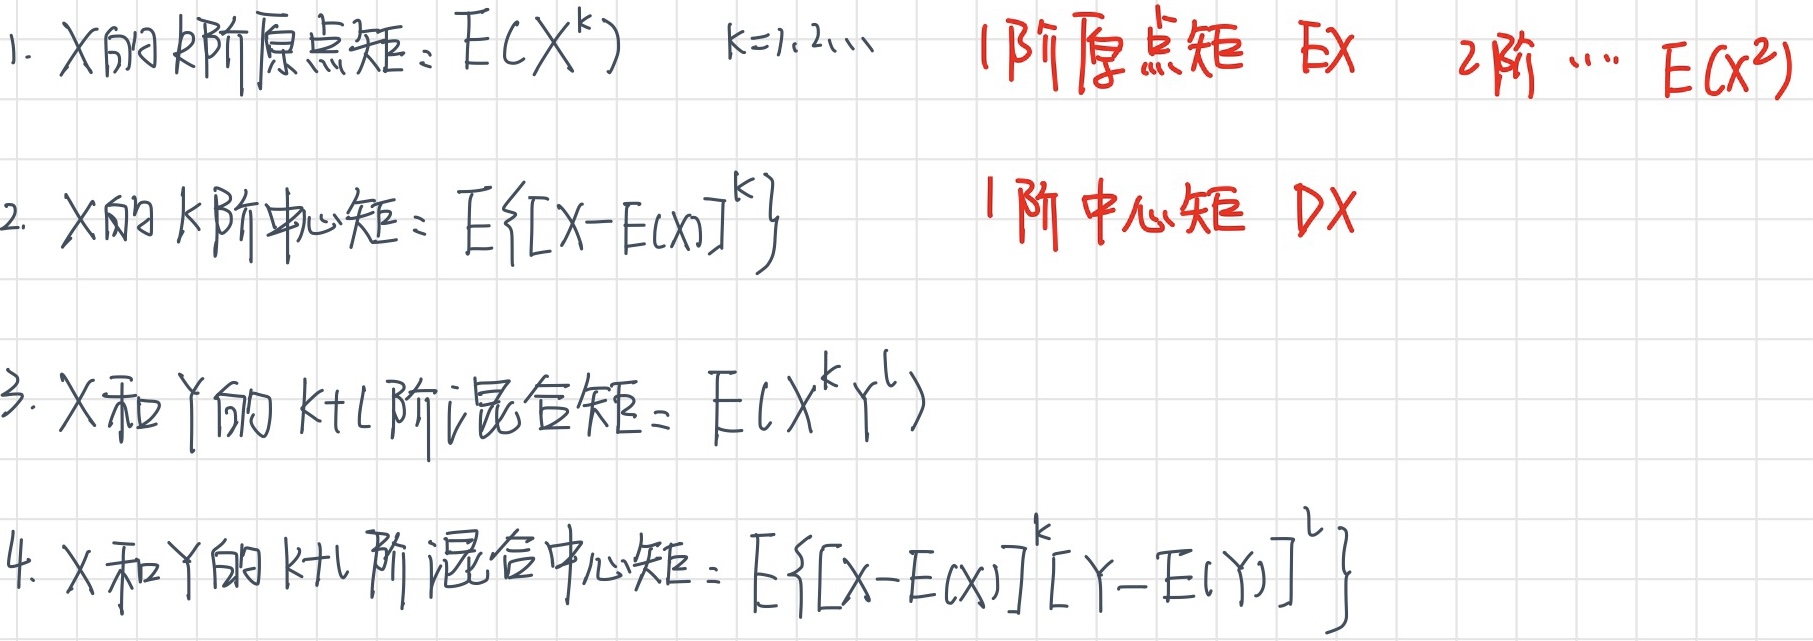 1. X的k阶原点矩：E(X^k) k=1,2,… 1阶原点矩 EX 2阶 ···· E(X²)
2. X的k阶中心矩：E{[X-E(X)]^k} 1阶中心矩 DX
3. X和Y的k+l阶混合矩：E(X^k Y^l)
4. X和Y的k+l阶混合中心矩：E{[X-E(X)]^k[Y-E(Y)]^l}